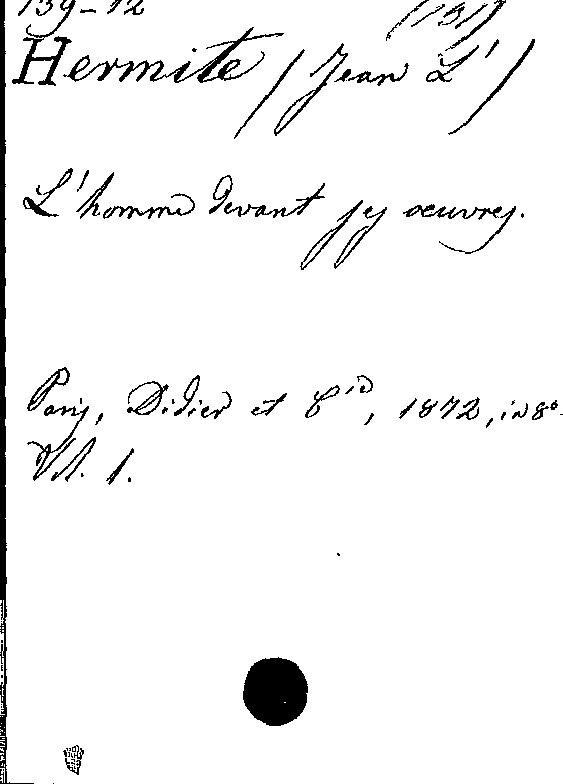 139-12 (131)
Hermite (Jean L')
L'homme devant ses oeuvres.
Paris, Didier et Cie, 1872, in 8o.
Vol. 1.